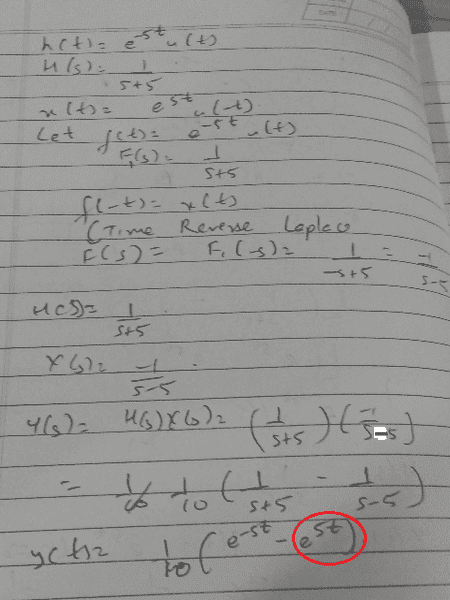 DATE
h(t) = e^-5t u(t)
H(s) = 1/(s+5)
x(t) = e^5t u(-t)
Let f(t) = e^-5t u(t)
F₁(s) = 1/(s+5)
f(-t) = x(t)
(Time Reverse Laplace
F(s) = F₁(-s) = 1/(-s+5) = -1/(s-5)
H(s) = 1/(s+5)
X(s) = -1/(s-5)
Y(s) = H(s)X(s) = (1/(s+5))(-1/(s-5))
= 1/10 (1/(s+5) - 1/(s-5))
y(t) = 1/10 (e^-5t - e^5t)